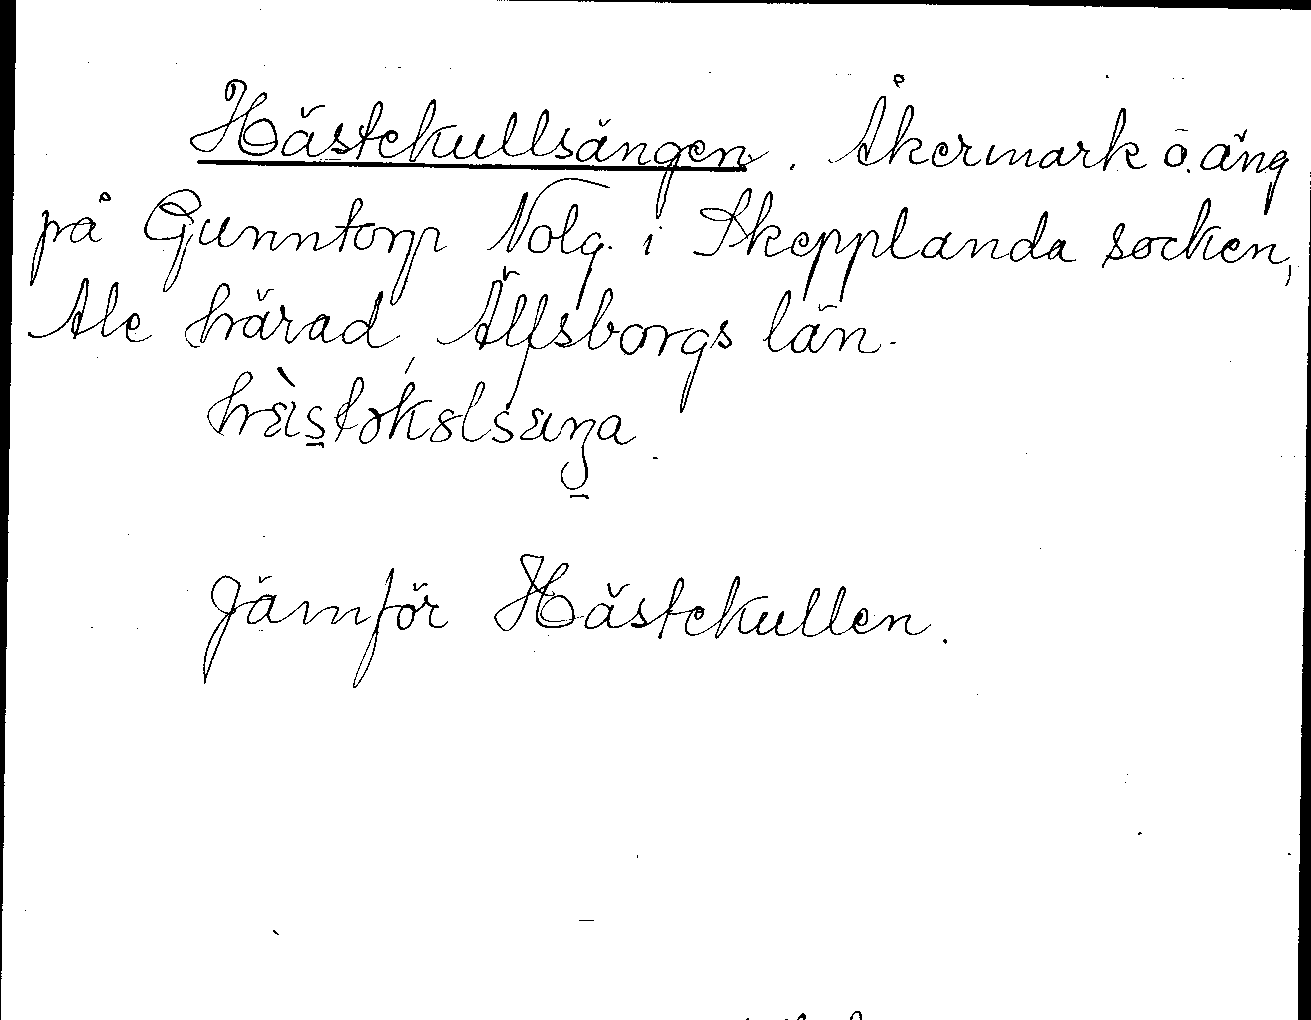 Hästekullsängen. Åkermark o. äng
på Gunntorp Nolg. i Skepplanda socken,
Ale härad, Älfsborgs län.
Jämför Hästekullen.